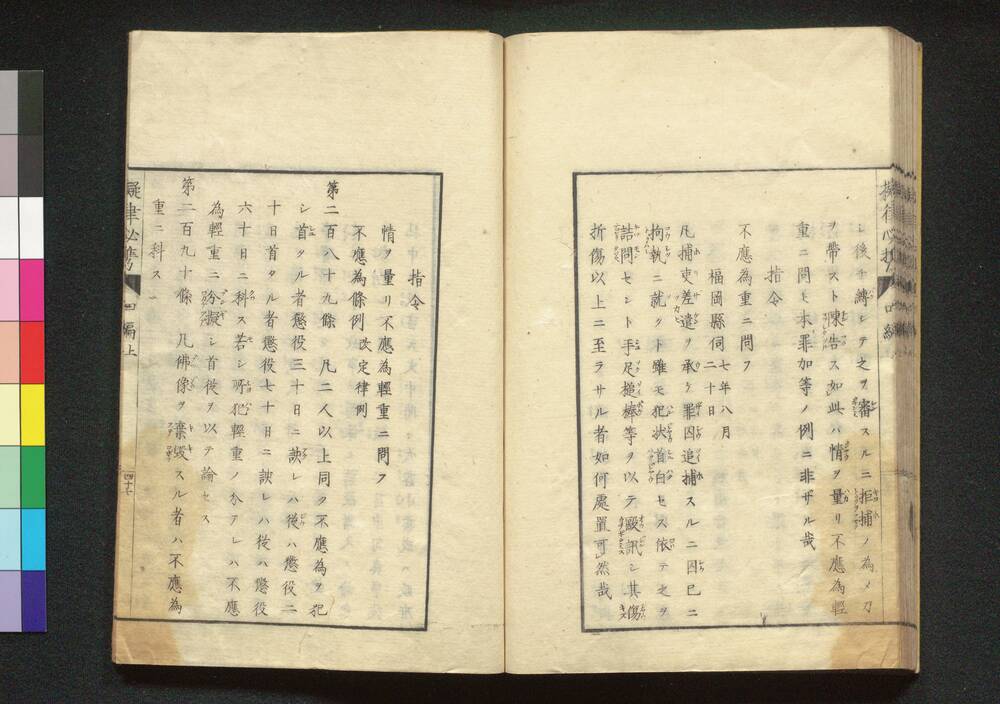 シ後チ縛シテ之ヲ審スルニ拒捕ノ為メ刀
ヲ帶スト陳告ス如此ハ情ヲ量リ不應為輕
重ニ問モ本罪加等ノ例ニ非ザル哉
指令
不應為重ニ問フ
福岡縣伺 七年八月二十日
凡捕吏差遣ヲ承ケ罪囚追捕スルニ囚已ニ
拘執ニ就クト雖モ犯状首白セス依テ之ヲ
詰問セント手足搥棒等ヲ以テ毆訊シ其傷
折傷以上ニ至ラサル者如何處置可然哉
指令
情ヲ量リ不應為輕重ニ問フ
不應為條例 改定律例
第二百八十九條 凡二人以上同ク不應為ヲ犯
シ首タル者懲役三十日ニ訣レハ從ハ懲役二
十日首タル者懲役七十日ニ訣レハ從ハ懲役
六十日ニ科ス若シ所犯輕重ノ分テレハ不應
為輕重ニ分擬シ首從ヲ以テ論セス
第二百九十條 凡佛像ヲ棄毀スル者ハ不應為
重ニ科ス
擬律必携
四編上
四十七